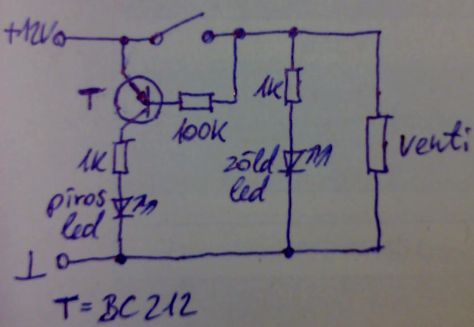 +12V
T
1K
100K
1K
zöld
led
venti
piros
led
T=BC212